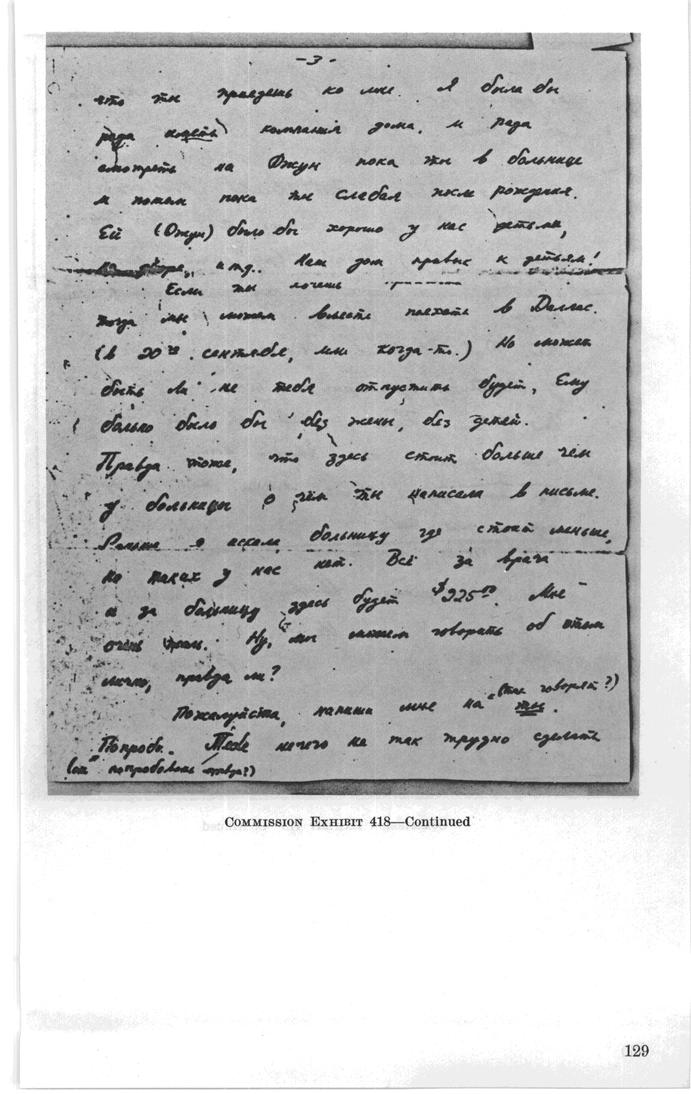 -3-
что ты приедешь ко мне. Я была бы
рада иметь компания дома, и рада
смотреть на Джун пока ты в больнице
и потом пока ты слабая после рождения.
Ей (Джун) было бы хорошо у нас детьми,
на дворе, итд. Наш дом привык к детьям!
Если ты хочешь
тогда мы можем вместе поехать в Даллас.
(в 20го сентября, или когда-то.) Но может
быть Ли не тебя отпустить будет, Ему
больно было бы без жены, без детей.
Правда тоже, что здесь стоит больше чем
у больницы о чём ты написала в письме.
Раньше я искала больницу где стоит меньше,
но таких у нас нет. Всё за врача
и за больницу здесь будет $225.00. Мне
очень жаль. Ну, мы можем говорать об этом
лично, правда ли?
(так говорят?)
Пожалуйста, напиши мне на "ты".
Попробь. Тебе нечего не так трудно сделать
(от "попробовать" правда?)
COMMISSION EXHIBIT 418—Continued
129